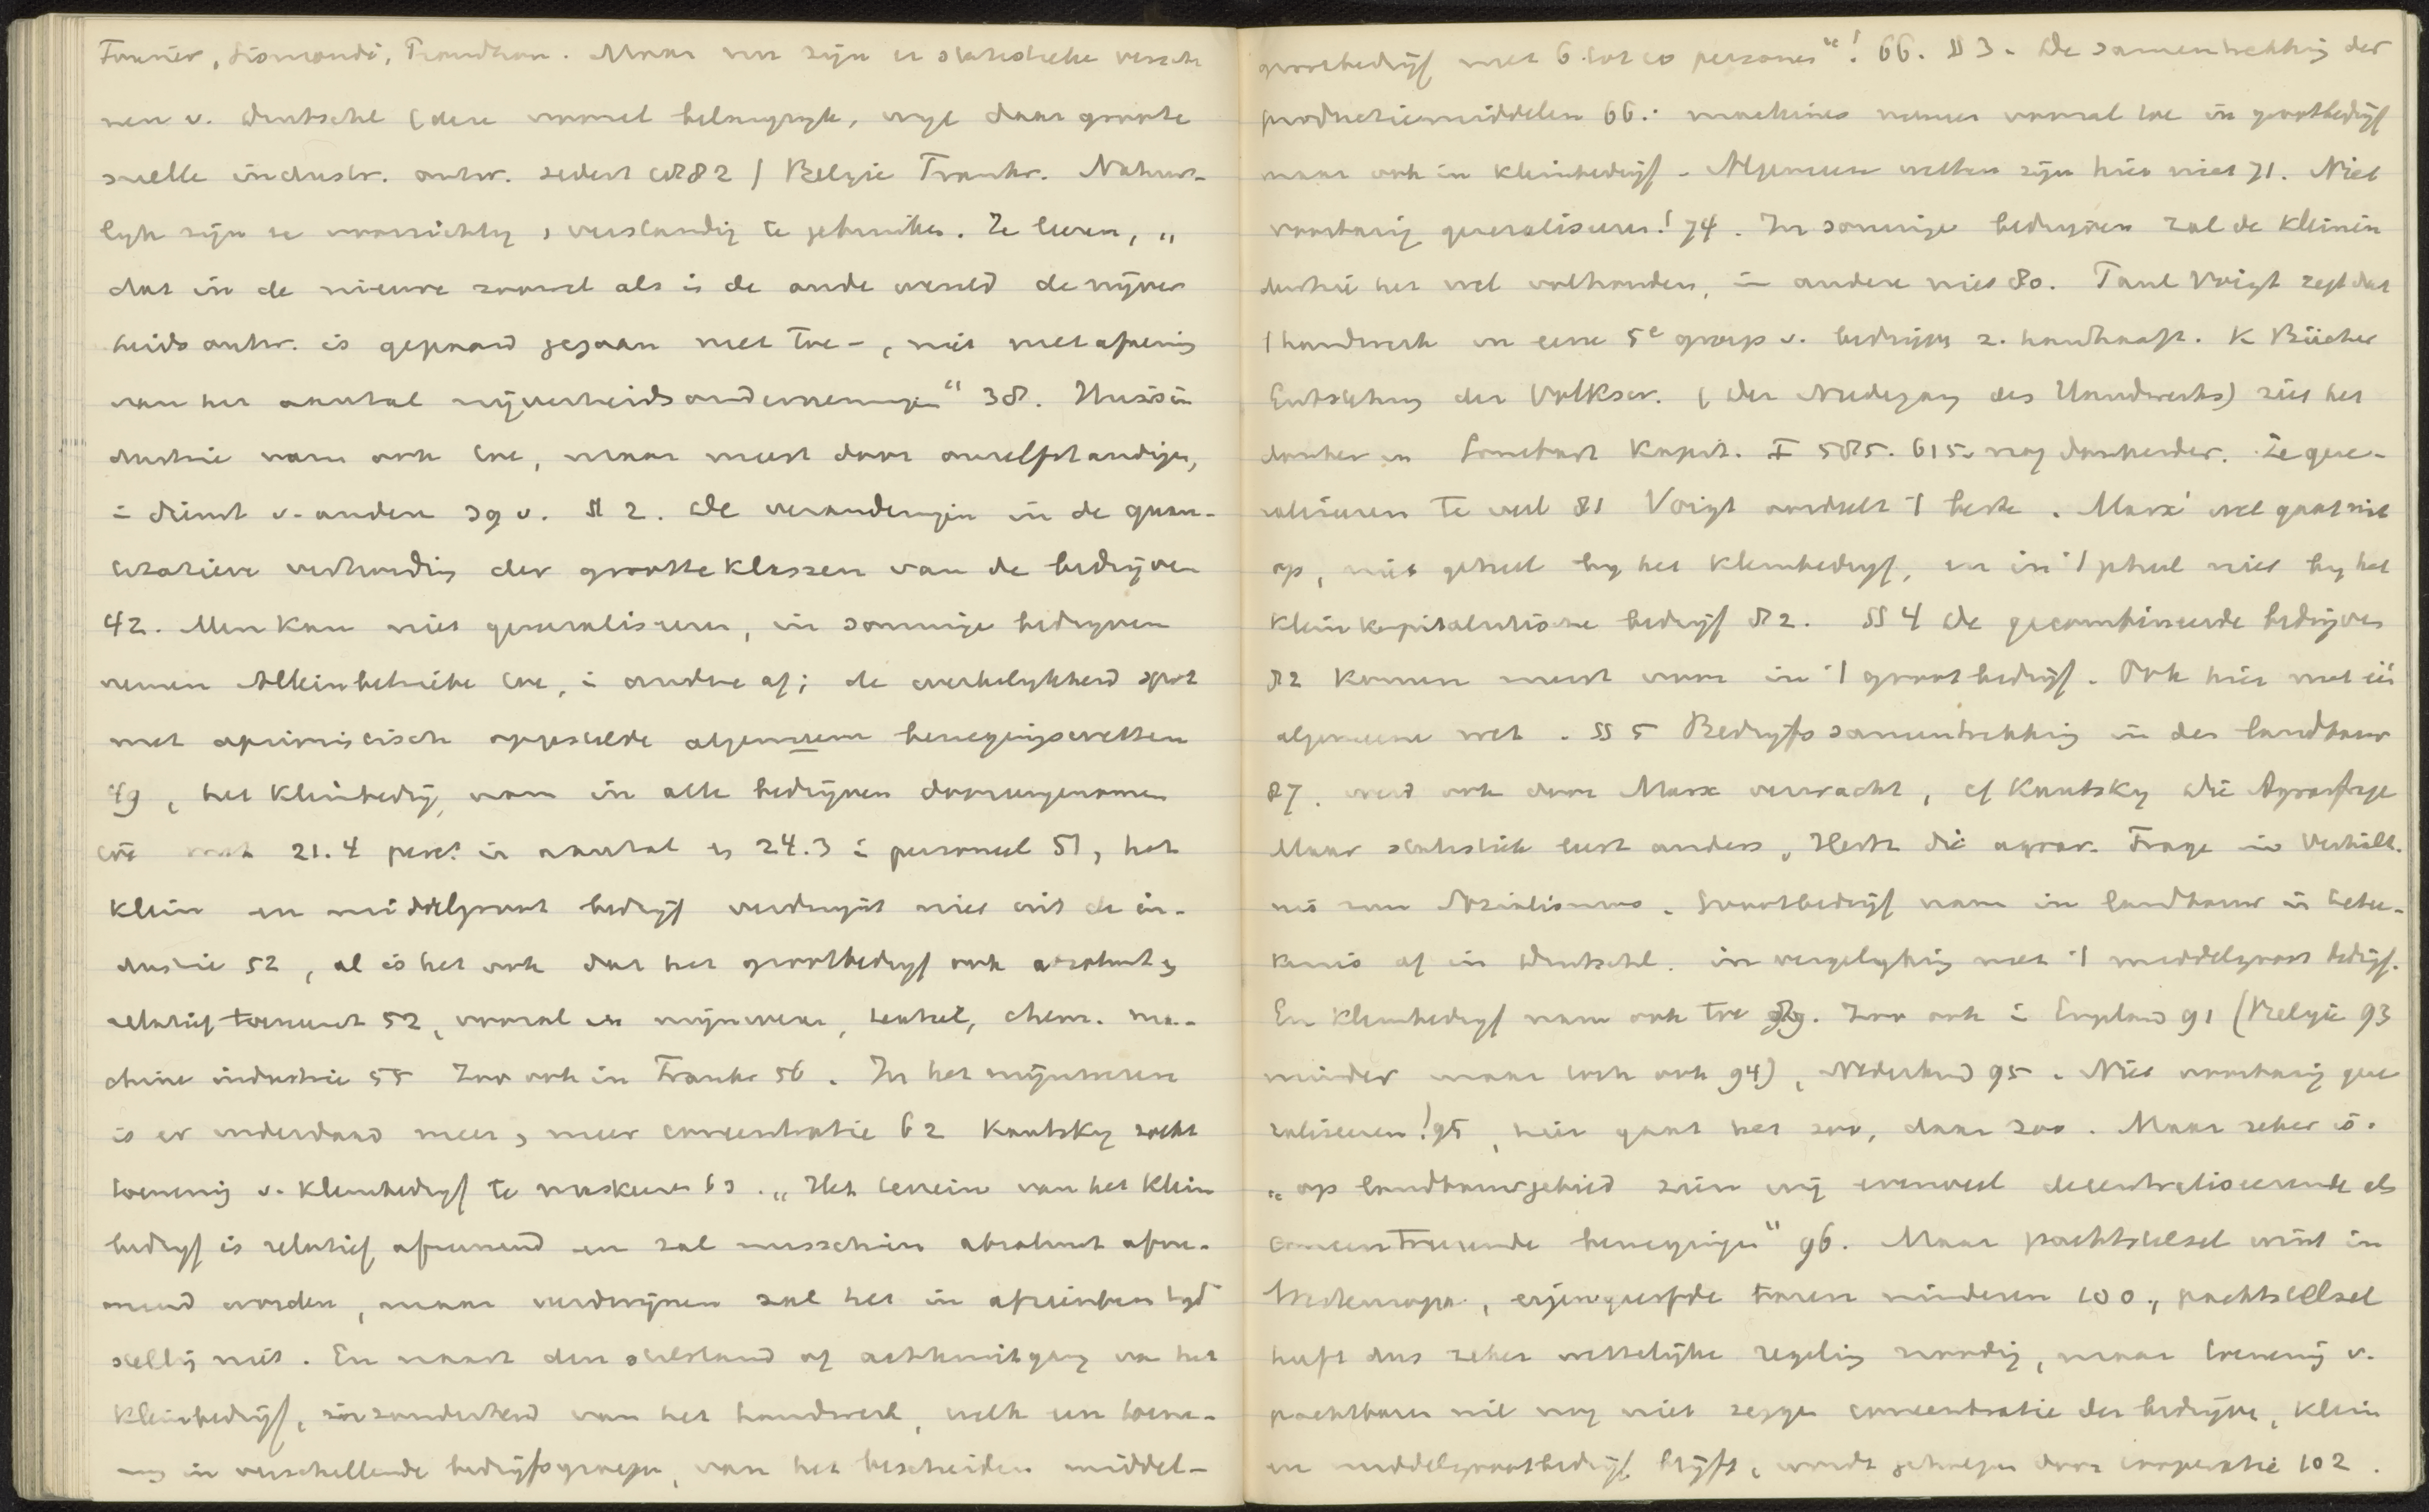 Fourier, Sismondi, Proudhon. Maar nu zijn er statistieke verschenen
nen v. Duitschl (deze vooral belangrijk, wijl daar groote
snelle industr. ontw. sedert 1882 / Belgie Frankr. Natuur-
lijk zijn ze voorzichtig, verstandig te gebruiken. Ze leeren, „
dat in de nieuwe zoowel als in de oude wereld de nijver
heids ontw. is gepaard gegaan met toe-, niet met afneming
van het aantal nijverheidsondernemingen“ 38. Huisin
dustrie nam ook toe, maar meest door onzelfstandigen,
in dienst v. anderen 39 v. § 2. De veranderingen in de quan-
titatieve verhouding der grootteklassen van de bedrijven
42. Men kan niet generaliseeren, in sommige bedrijven
nemen Alleinbetriebe toe, in andere af; de werkelijkheid spot
met aprioristisch opgestelde algemeene bewegingswetten
49, het kleinbedrijf nam in alle bedrijven dooreengenomen
toe met 21.4 perct in aantal en 24.3 in personeel 51, het
klein en middelgroot bedrijf verdwijnt niet uit de in-
dustrie 52, al is het ook dat het grootbedrijf ook absoluut en
relatief toeneemt 52, vooral in mijnwezen, textiel, chem. ma-
chine industrie 55 Zoo ook in Frankr 56. In het mijnwezen
is er inderdaad meer en meer concentratie 62 Kautsky zocht
toeneming v. kleinbedrijf te maskeeren 63. „Het terrein van het klein
bedrijf is relatief afnemend en zal misschien absoluut afne-
mend worden, maar verdwijnen zal het in afzienbaren tijd
stellig niet. En naast den stilstand of achteruitgang van het
kleinbedrijf, in zonderheid van het handwerk, welk een toene-
ming in verschillende bedrijfsgroepen, van het bescheiden middel-
grootbedrijf met 6 tot 10 personen“! 66. § 3. De samentrekking der
productiemiddelen 66.: machines nemen vooral toe in grootbedrijf
maar ook in kleinbedrijf. Algemeene wetten zijn hier niet 71. Niet
voorbarig generaliseeren! 74. In sommige bedrijven zal de kleinin
dustrie het wel volhouden, in andere niet 80. Paul Voigt zegt dat
't handwerk in eene 5e groep v. bedrijven z. handhaaft. K Bücher
Entstehung der Volksw. (Der Niedergang des Handwerks) ziet het
donker in Sombart Kapit. I 585. 615. nog donkerder. Ze gene-
raliseeren te veel 81 Voigt oordeelt 't beste. Marx' wet gaat niet
op, niet geheel bij het kleinbedrijf, en in 't geheel niet bij het
kleinkapitalistische bedrijf 82. § 4 De gecombineerde bedrijven
82 komen meest voor in 't grootbedrijf. Ook hier niet één
algemeene wet. § 5 Bedrijfs samentrekking in den landbouw
87. werd ook door Marx verwacht, cf Kautsky Die Agrarfrage
Maar statistiek leert anders, Hertz die agrar. Frage im Verhält-
nis zum Sozialismus. Grootbedrijf nam in landbouw in betee-
kenis af in Duitschl. in vergelijking met 't middelgroot bedrijf.
En kleinbedrijf nam ook toe 89. Zoo ook in Engeland 91 (Belgie 93
minder maar toch ook 94), Nederland 95. Niet voorbarig gene
raliseeren! 95, hier gaat het zoo, daar zoo. Maar zeker is:
„op landbouwgebied zien wij evenveel decentraliseerende als
concentreerende bewegingen“ 96. Maar pachtstelsel wint in
Westeuropa, eigengeërfde boeren minderen 100, pachtstelsel
heeft dus zeker wettelijke regeling noodig, maar toeneming v.
pachtboeren wil nog niet zeggen concentratie der bedrijven, klein
en middelgrootbedrijf blijft, wordt geholpen door cooperatie 102.